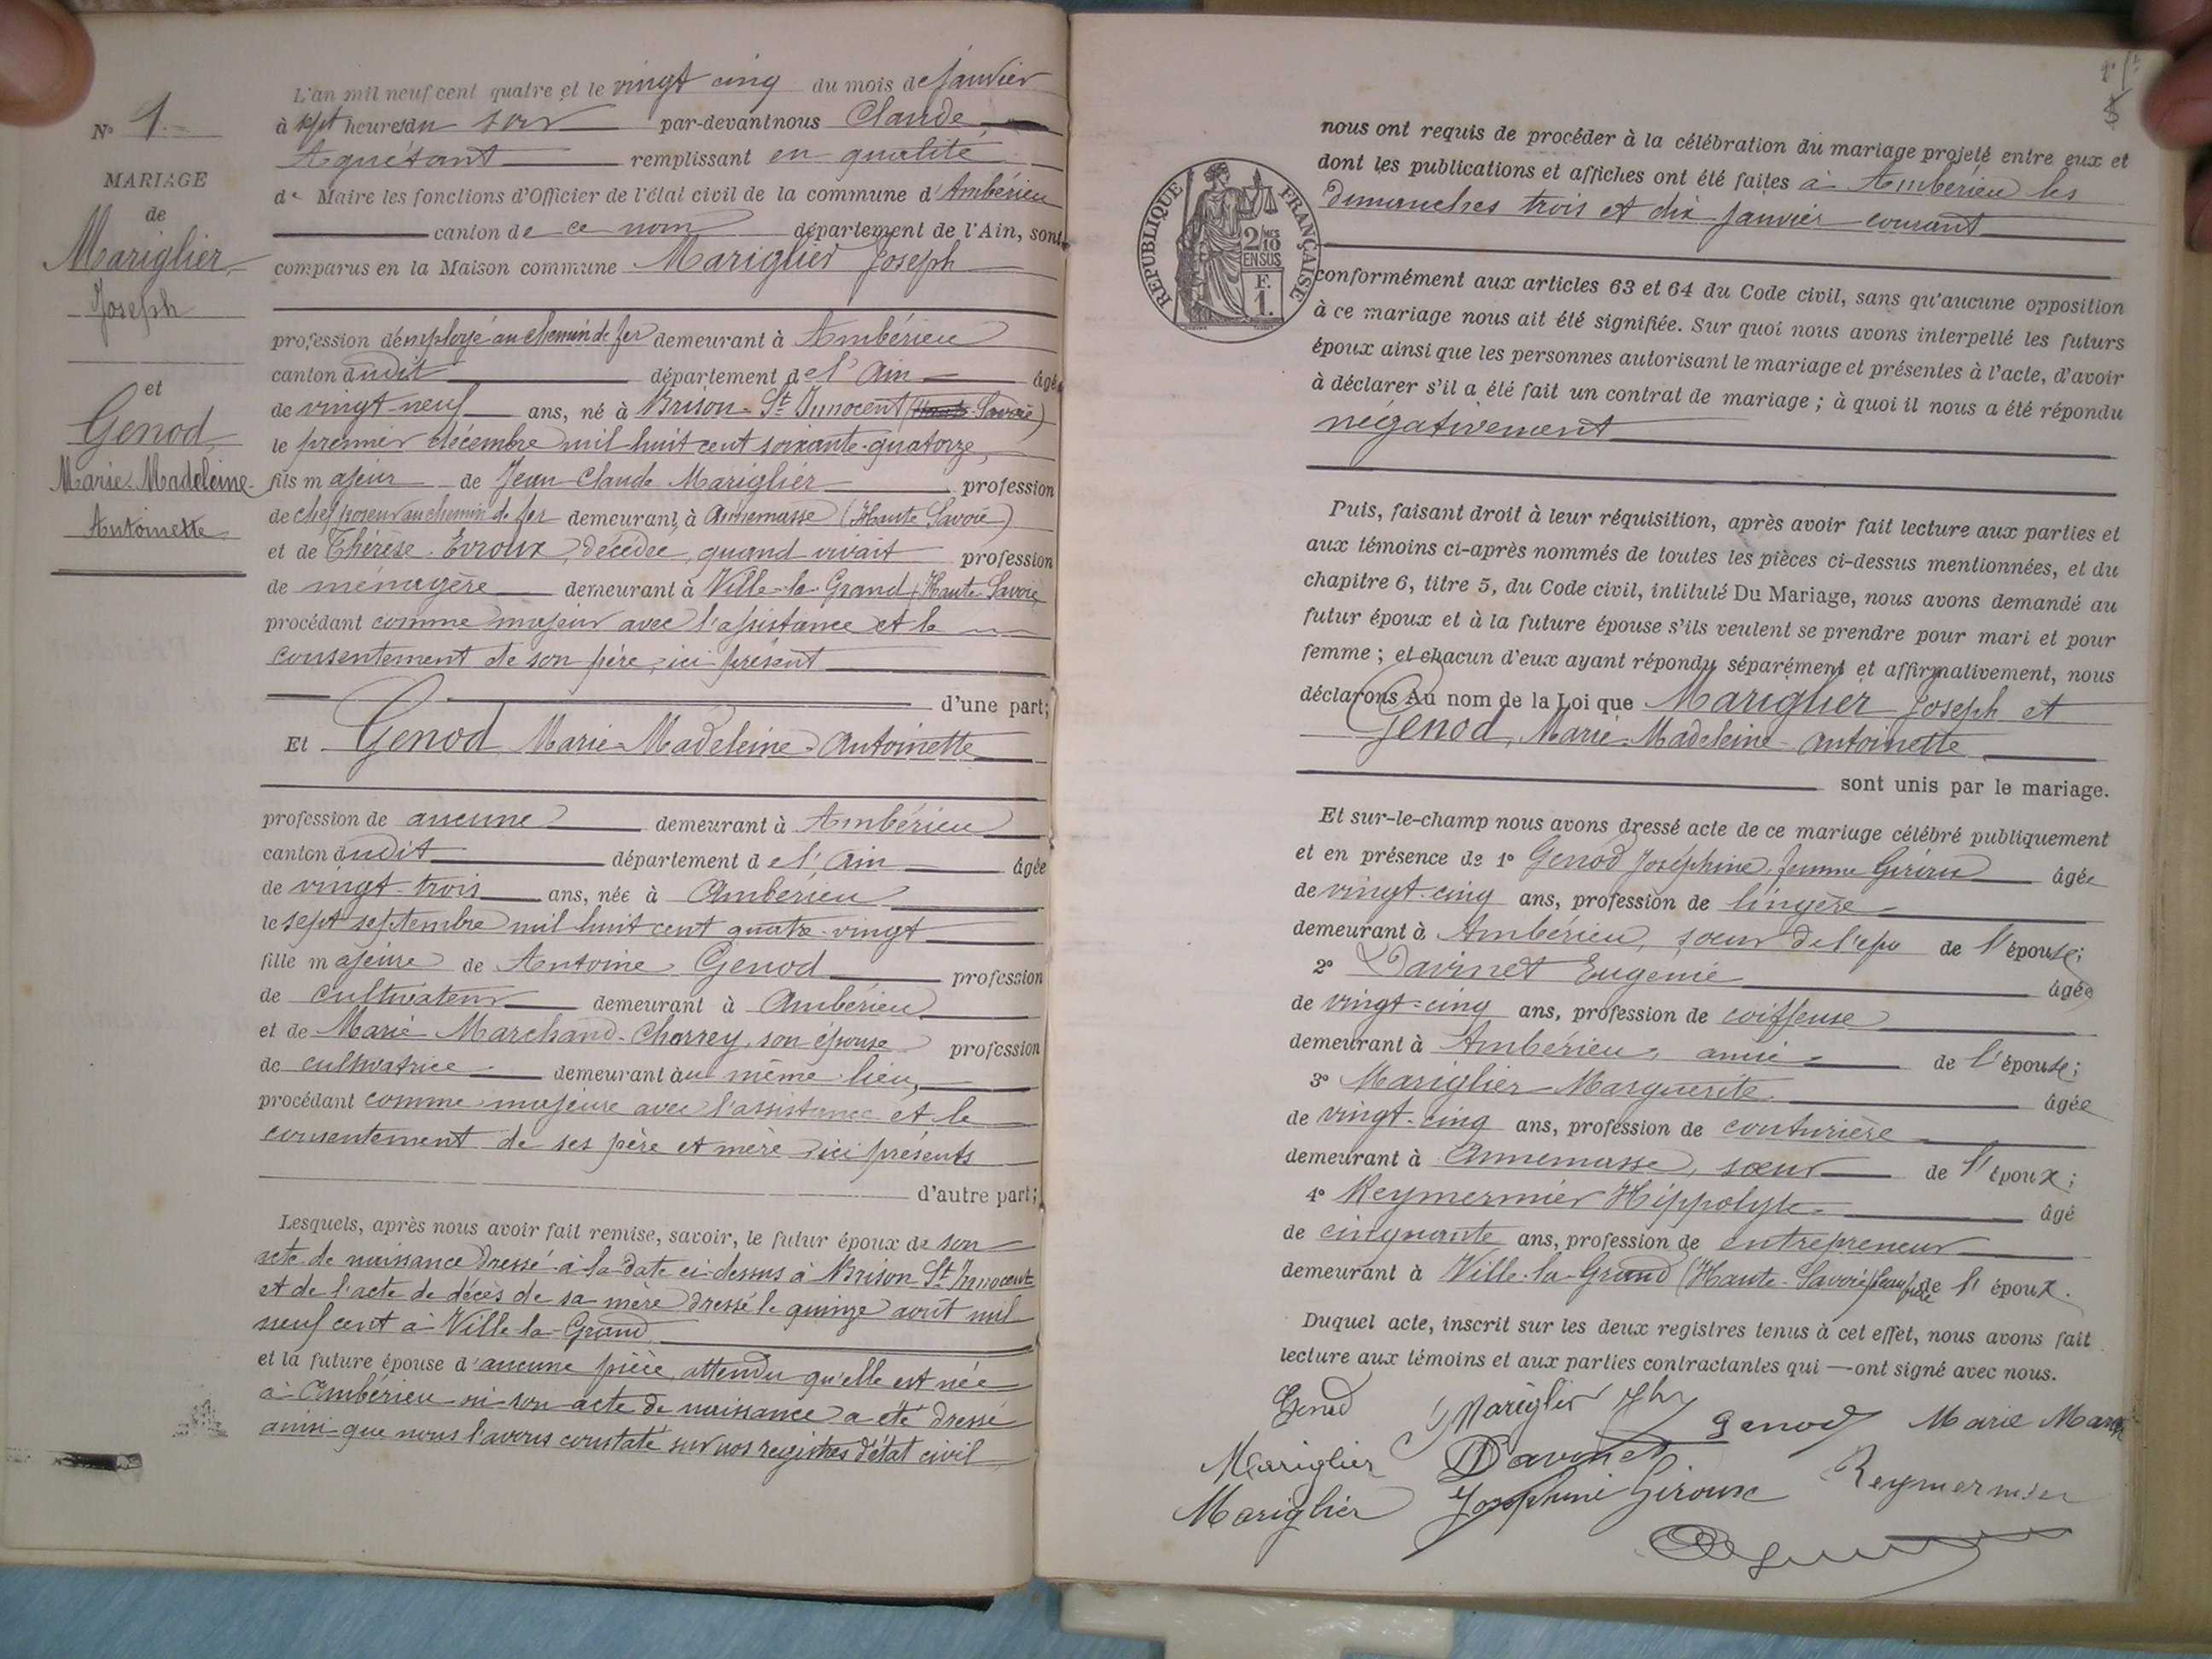 N° 1.
MARIAGE
de
Mariglier
Joseph
et
Genod
Marie-Madeleine-
Antoinette
L'an mil neuf cent quatre et le vingt cinq du mois de Janvier
à sept heures du soir par-devant nous Claude
Aguétant remplissant en qualité
de Maire les fonctions d'Officier de l'état civil de la commune d'Ambérieu
canton de ce nom département de l'Ain, sont
comparus en la Maison commune Mariglier Joseph
profession d'employé au chemin de fer demeurant à Ambérieu
canton dudit département de l'Ain âgé
de vingt-neuf ans, né à Brison-St Innocent (Savoie)
le premier décembre mil huit cent soixante-quatorze,
fils majeur de Jean-Claude Mariglier profession
de chef poseur au chemin de fer demeurant à Annemasse (Haute Savoie)
et de Thérèse Evroux, décédée, quand vivait profession
de ménagère demeurant à Ville-la-Grand (Haute-Savoie)
procédant comme majeur avec l'assistance et le
consentement de son père, ici présent
d'une part;
Et Genod Marie-Madeleine-Antoinette
profession de aucune demeurant à Ambérieu
canton dudit département de l'Ain âgée
de vingt-trois ans, née à Ambérieu
le sept septembre mil huit cent quatre-vingt
fille majeure de Antoine Genod profession
de cultivateur demeurant à Ambérieu
et de Marie Marchand-Chorrey, son épouse profession
de cultivatrice demeurant au même lieu,
procédant comme majeure avec l'assistance et le
consentement de ses père et mère ici présents
d'autre part;
Lesquels, après nous avoir fait remise, savoir, le futur époux de son
acte de naissance dressé à la date ci-dessus à Brison-St Innocent
et de l'acte de décès de sa mère dressé le quinze août mil
neuf cent à Ville-la-Grand
et la future épouse d'aucune pièce, attendu qu'elle est née
à Ambérieu où son acte de naissance a été dressé
ainsi que nous l'avons constaté sur nos registres d'état civil
REPUBLIQUE FRANÇAISE
2/10 MES
EN SUS
F.
1.
nous ont requis de procéder à la célébration du mariage projeté entre eux et
dont les publications et affiches ont été faites à Ambérieu les
dimanches trois et dix janvier courant
conformément aux articles 63 et 64 du Code civil, sans qu'aucune opposition
à ce mariage nous ait été signifiée. Sur quoi nous avons interpellé les futurs
époux ainsi que les personnes autorisant le mariage et présentes à l'acte, d'avoir
à déclarer s'il a été fait un contrat de mariage ; à quoi il nous a été répondu
négativement
Puis, faisant droit à leur réquisition, après avoir fait lecture aux parties et
aux témoins ci-après nommés de toutes les pièces ci-dessus mentionnées, et du
chapitre 6, titre 5, du Code civil, intitulé Du Mariage, nous avons demandé au
futur époux et à la future épouse s'ils veulent se prendre pour mari et pour
femme ; et chacun d'eux ayant répondu séparément et affirmativement, nous
déclarons Au nom de la Loi que Mariglier Joseph et
Genod, Marie-Madeleine-Antoinette
sont unis par le mariage.
Et sur-le-champ nous avons dressé acte de ce mariage célébré publiquement
et en présence de 1° Genod Joséphine, femme âgée
de vingt-cinq ans, profession de lingère
demeurant à Ambérieu, sœur de l'épo de l'épouse;
2° Davinet Eugenie âgée
de vingt-cinq ans, profession de coiffeuse
demeurant à Ambérieu, amie de l'épouse;
3° Mariglier Marguerite âgée
de vingt-cinq ans, profession de couturière
demeurant à Annemasse, sœur de l'époux;
4° Reymermier Hippolyte âgé
de cinquante ans, profession de entrepreneur
demeurant à Ville-la-Grand (Haute-Savoie) de l'époux.
Duquel acte, inscrit sur les deux registres tenus à cet effet, nous avons fait
lecture aux témoins et aux parties contractantes qui — ont signé avec nous.
Genod Mariglier Jh Genod Marie Marc
Mariglier Davinet Reymermier
Mariglier Joséphine Giroux